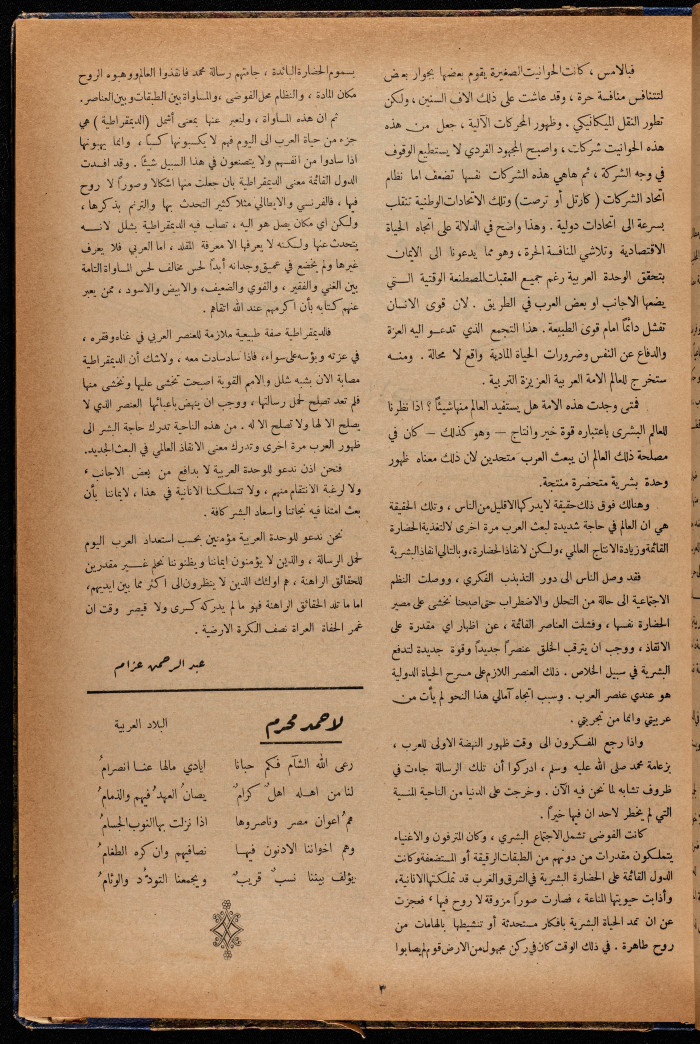 فبالامس ، كانت الحوانيت الصغيرة يقوم بعضها بجوار بعض
لتتنافس منافسة حرة ، وقد عاشت على ذلك الاف السنين ، ولكن
تطور النقل الميكانيكي . وظهور المحركات الآلية ، جعل من هذه
هذه الحوانيت شركات ، واصبح المجهود الفردي لا يستطيع الوقوف
في وجه الشركة ، ثم هاهي هذه الشركات نفسها تضعف اما نظام
اتحاد الشركات ( كارتل أو ترصت) وتلك الاتحادات الوطنية تنقلب
بسرعة الى اتحادات دولية . وهذا واضح في الدلالة على اتجاه الحياة
الاقتصادية وتلاشي المنافسة الحرة ، وهو مما يدعونا الى الايمان
بتحقق الوحدة العربية رغم جميع العقبات المصطنعة الوقتية التي
يضعها الاجانب او بعض العرب في الطريق . لان قوى الانسان
تفشل دائماً امام قوى الطبيعة . هذا التجمع الذي تدعو اليه العزة
والدفاع عن النفس وضرورات الحياة المادية واقع لا محالة . ومنه
ستخرج للعالم الامة العربية العزيزة التربية .
فمتى وجدت هذه الامة هل يستفيد العالم منها شيئاً ؟ اذا نظرنا
للعالم البشرى باعتباره قوة خير وانتاج – وهو كذلك – كان في
مصلحة ذلك العالم ان يبعث العرب متحدين لان ذلك معناه ظهور
وحدة بشرية متحضرة منتجة.
وهنالك فوق ذلك حقيقة لا يدركها الا قليل من الناس ، وتلك الحقيقة
هي ان العالم في حاجة شديدة لبعث العرب مرة اخرى لا لتغذية الحضارة
القائمة وزيادة الانتاج العالمي ، ولكن لانقاذ الحضارة ، وبالتالي انقاذ البشرية
فقد وصل الناس الى دور التذبذب الفكري ، ووصلت النظم
الاجتماعية الى حالة من التحلل والاضطراب حتى اصبحنا نخشى على مصير
الحضارة نفسها ، وفشلت العناصر القائمة ، عن اظهار اي مقدرة على
الانقاذ ، ووجب ان يترقب الخلق عنصراً جديداً وقوة جديدة لتدفع
البشرية في سبيل الخلاص . ذلك العنصر اللازم على مسرح الحياة الدولية
هو عندي عنصر العرب . وسبب اتجاه آمالي هذا النحو لم يأت من
عربيتي وانما من تجربتي .
واذا رجع المفكرون الى وقت ظهور النهضة الاولى للعرب ،
بزعامة محمد صلى الله عليه وسلم ، ادركوا أن تلك الرسالة جاءت في
ظروف تشابه لما نحن فيه الآن . وخرجت على الدنيا من الناحية المنسية
التي لم يخطر لاحد ان فيها خيراً .
كانت الفوضى تشمل الاجتماع البشري ، وكان المترفون والاغنياء
يتملكون مقدرات من دونهم من الطبقات الرقيقة أو المستضعفة وكانت
الدول القائمة على الحضارة البشرية في الشرق والغرب قد تملكتها الانانية ،
وأذابت حيويتها المناعة ، فصارت صوراً مزوقة لا روح فيها ، فعجزت
عن ان تمد الحياة البشرية بافكار مستحدثة أو تنشيطها بالهامات من
روح طاهرة . في ذلك الوقت كان في ركن مجهول من الارض قوم لم يصابوا
بسموم الحضارة البائدة ، جاءتهم رسالة محمد فانقذوا العالم ووهبوه الروح
مكان المادة ، والنظام محل الفوضى ، والمساواة بين الطبقات وبين العناصر.
ثم ان هذه المساواة ، ولنعبر عنها بمعنى أشمل (الديمقراطية ) هي
جزء من حياة العرب الى اليوم فهم لا يكسبونها كسباً ، وانما يهبونها
اذا سادوا من انفسهم ولا يتصنعون في هذا السبيل شيئاً . وقد افسدت
الدول القائمة معنى الديمقراطية بان جعلت منها اشكالا وصوراً لا روح
فيها ، فالفرنسي والايطالي مثلا كثير التحدث بها والترنم بذكرها ،
ولكن اي مكان يصل هو اليه ، تصاب فيه الديمقراطية بشلل لانه
يتحدث عنها ولكنه لا يعرفها الا معرفة المقلد ، اما العربي فلا يعرف
غيرها ولم يخضع في عميق وجدانه أبداً لحس مخالف لحس المساواة التامة
بين الغني والفقير ، والقوي والضعيف ، والابيض والاسود ، ممن يعبر
عنهم كتابه بأن اكرمهم عند الله اتقاهم .
فالديمقراطية صفة طبيعية ملازمة للعنصر العربي في غناه وفقره ،
في عزته وبؤسه على سواء ، فاذا ساد سادت معه ، ولا شك أن الديمقراطية
مصابة الان بشبه شلل والامم القوية اصبحت تخشى عليها وتخشى منها
فلم تعد تصلح لحمل رسالتها ، ووجب ان ينهض باعبائها العنصر الذي لا
يصلح الا لها ولا تصلح الا له . من هذه الناحية تدرك حاجة البشر الى
ظهور العرب مرة اخرى وتدرك معنى الانقاذ العالمي في البعث الجديد.
فنحن اذن ندعو للوحدة العربية لا بدافع من بعض الاجانب ،
ولا لرغبة الانتقام منهم ، ولا تتملكنا الانانية في هذا ، لايماننا بأن
بعث امتنا فيه نجاتنا واسعاد البشر كافة .
نحن ندعو للوحدة العربية مؤمنين بحسب استعداد العرب اليوم
لحمل الرسالة ، والذين لا يؤمنون ايماننا ويظنوننا نحلم غير مقدرين
للحقائق الراهنة ، هم اولئك الذين لا ينظرون الى اكثر مما بين ايديهم ،
اما ما تلد الحقائق الراهنة فهو ما لم يدركه كسرى ولا قيصر وقت ان
غمر الحفاة العراة نصف الكرة الارضية .
عبد الرحمن عزام
لاحمد محرم
البلاد العربية
رعى الله الشآم فكم حبانا ايادي مالها عنا انصرامُ
لنا من اهله اهلٌ كرامٌ يصانُ العهد فيهم والذمامُ
همُ اعوان مصر وناصروها اذا نزلت بها النوب الجسامُ
وهم اخواننا الادنون فيها نصافيهم وان كره الطغامُ
يؤلف بيننا نسبٌ قريبٌ ويجمعنا التودُّد والوئامُ
٣